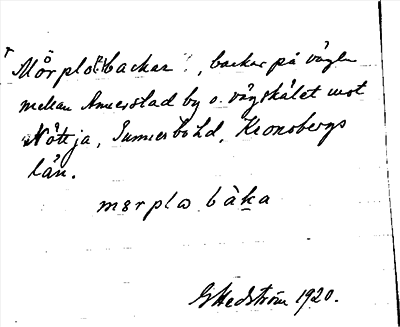 Mörplobackar, backar på vägen
mellan Annerstad by o. vägskälet mot
Nöttja, Sunnerbo hd, Kronobergs
län.
mɵrplɷ bàka
G Hedström 1920.